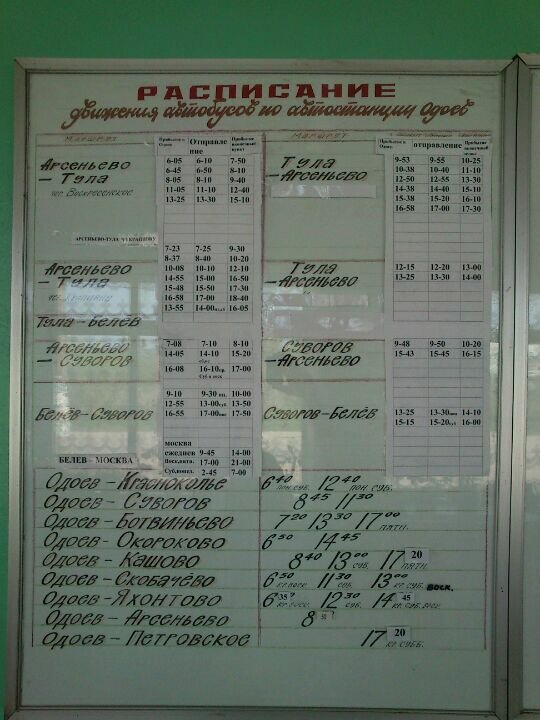 РАСПИСАНИЕ
движения автобусов по автостанции Одоев
МАРШРУТ
Прибытие в Одоев Отправление Прибытие конечный пункт
Арсеньево – Тула
чер. Воскресенское
6-05 6-10 7-50
6-45 6-50 8-10
8-05 8-10 9-40
11-05 11-10 12-40
13-25 13-30 15-10
АРСЕНЬЕВО-ТУЛА Ч/КРАПИВНУ
7-23 7-25 9-30
8-37 8-40 10-20
Арсеньево – Тула
10-08 10-10 12-10
14-55 15-00 16-50
15-48 15-50 17-30
16-58 17-00 18-40
Тула – Белёв
13-55 14-00 16-05
Арсеньево – Суворов
7-08 7-10 8-10
14-05 14-10 15-20
16-08 16-10 17-00
Суб и воск
Белёв – Суворов
9-10 9-30 10-00
12-55 13-00 13-50
16-55 17-00 17-50
БЕЛЕВ – МОСКВА
москва
ежеднев 9-45 14-00
Воск,пятн. 17-00 21-00
Суб,понед. 2-45 7-00
МАРШРУТ
отправление
Тула – Арсеньево
9-53 9-55 10-25
10-38 10-40 11-10
12-50 12-55 13-30
14-38 14-40 15-10
15-38 15-20 16-10
16-58 17-00 17-30
Тула – Арсеньево
12-15 12-20 13-00
13-25 13-30 14-00
Суворов – Арсеньево
9-48 9-50 10-20
15-43 15-45 16-15
Суворов – Белёв
13-25 13-30 14-10
15-15 15-20 16-00
Одоев – Красноколье 6⁴⁰ пон. суб. 12⁴⁰ пон. суб.
Одоев – Суворов 8⁴⁵ 11³⁰
Одоев – Ботвиньево 7²⁰ 13³⁰ 17⁰⁰ пятн.
Одоев – Окороково 6⁵⁰ 14⁴⁵
Одоев – Кашово 8⁴⁰ 13⁰⁰ суб. 17²⁰ пятн.
Одоев – Скобачево 6⁵⁰ кр.воск. 11³⁰ суб. 13⁰⁰ кр.суб. воск.
Одоев – Яхонтово 6³⁵ кр. воск. 12³⁰ суб. 14⁴⁵ кр. суб. воск
Одоев – Арсеньево 8
Одоев – Петровское 17²⁰ кр. субб.